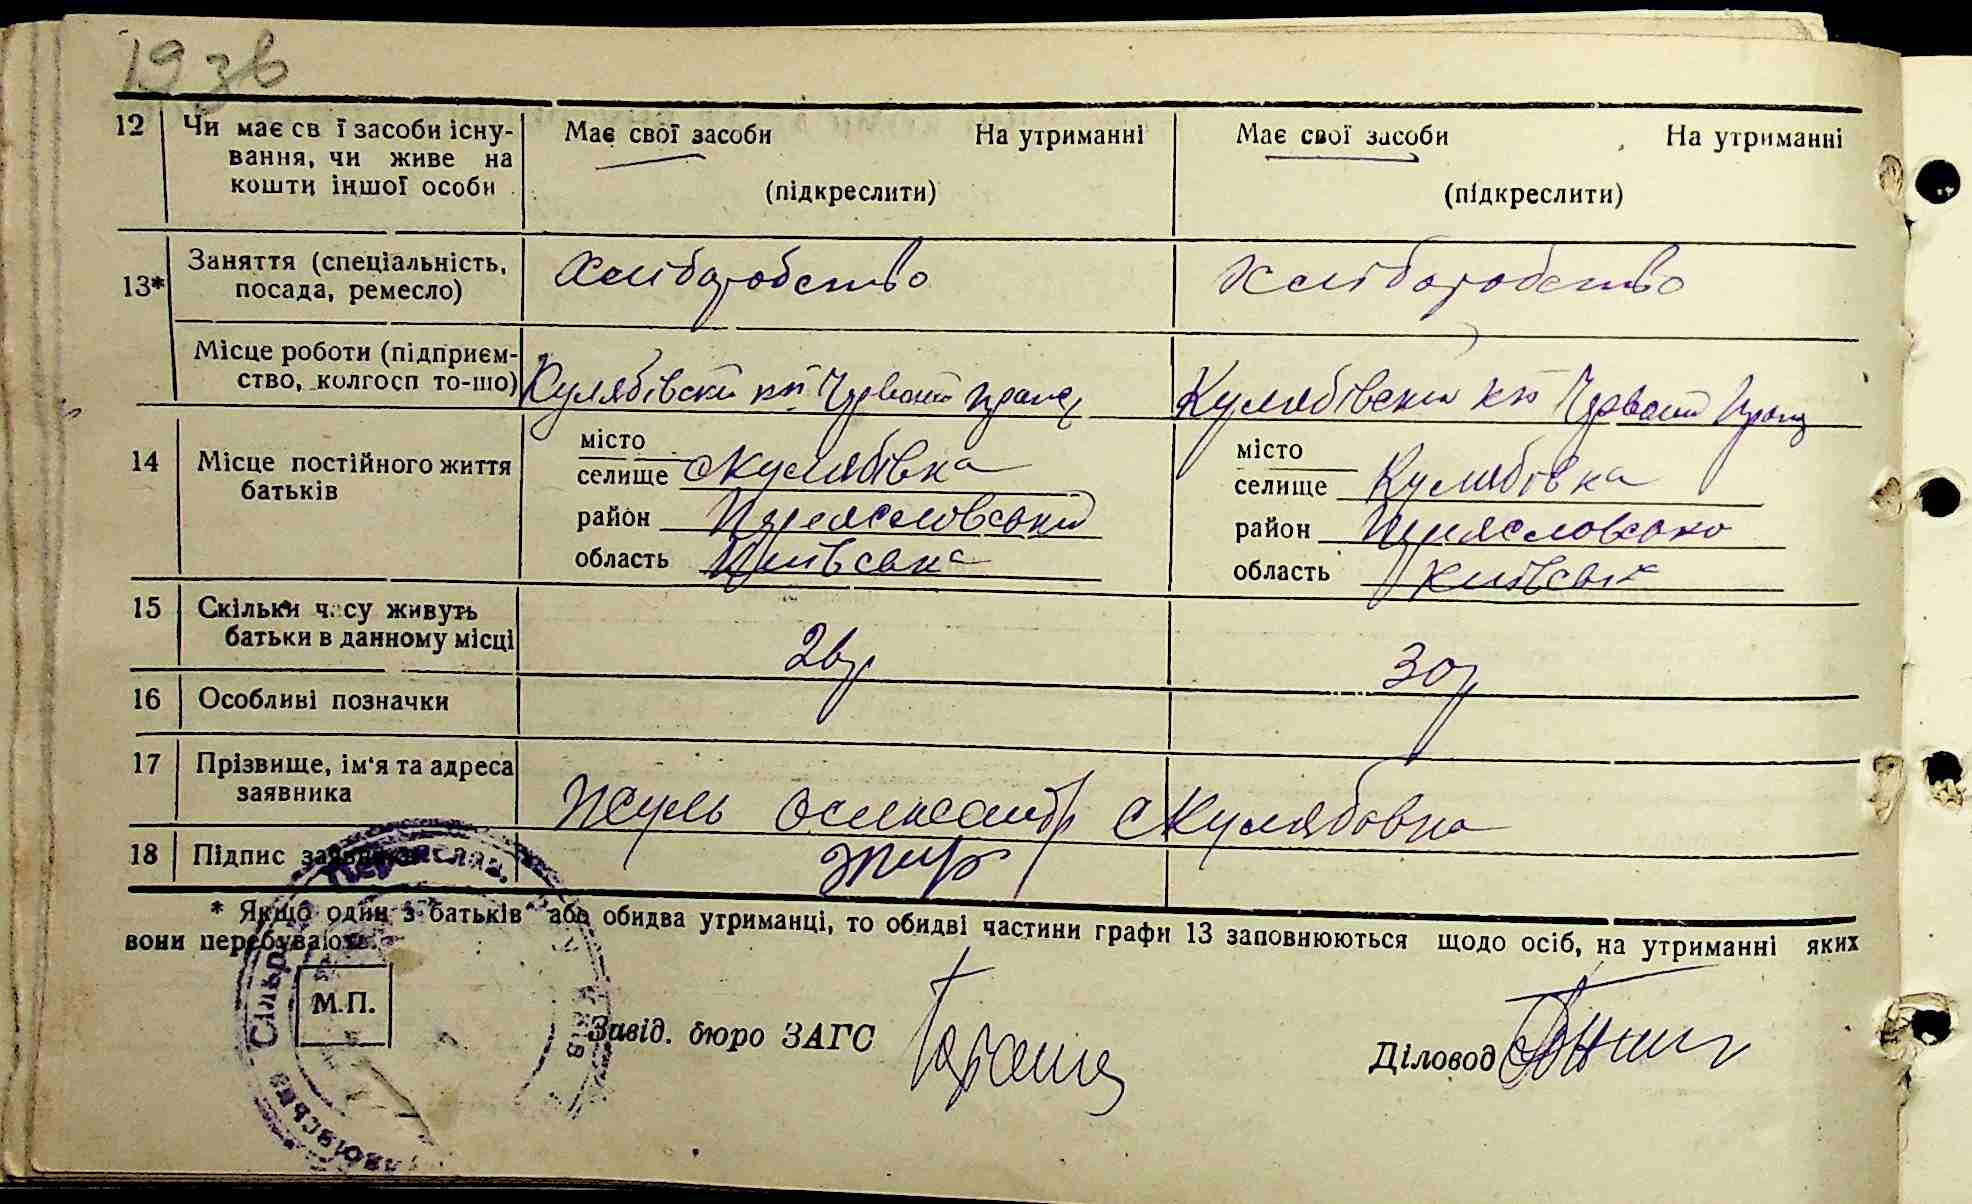 1936
12 Чи має св ї засоби існу- Має свої засоби На утриманні Має свої засоби На утриманні
вання, чи живе на
кошти іншої особи (підкреслити) (підкреслити)
13* Заняття (спеціальність, Хліборобство Хліборобство
посада, ремесло)
Місце роботи (підприєм-
ство, колгосп то-що) Кулябівськ Кулябівськ
14 Місце постійного життя
батьків
місто місто
селище с Кулябівка селище Кулябівка
район район
область Київська область Київськ
15 Скільки часу живуть
батьки в данному місці 26р 30р
16 Особливі позначки
17 Прізвище, ім'я та адреса
заявника Жуль Олександр с Кулябовка
18 Підпис заявника
* Якщо один з батьків або обидва утриманці, то обидві частини графи 13 заповнюються щодо осіб, на утриманні яких
вони перебувають.
М.П.
Завід. бюро ЗАГС
Діловод